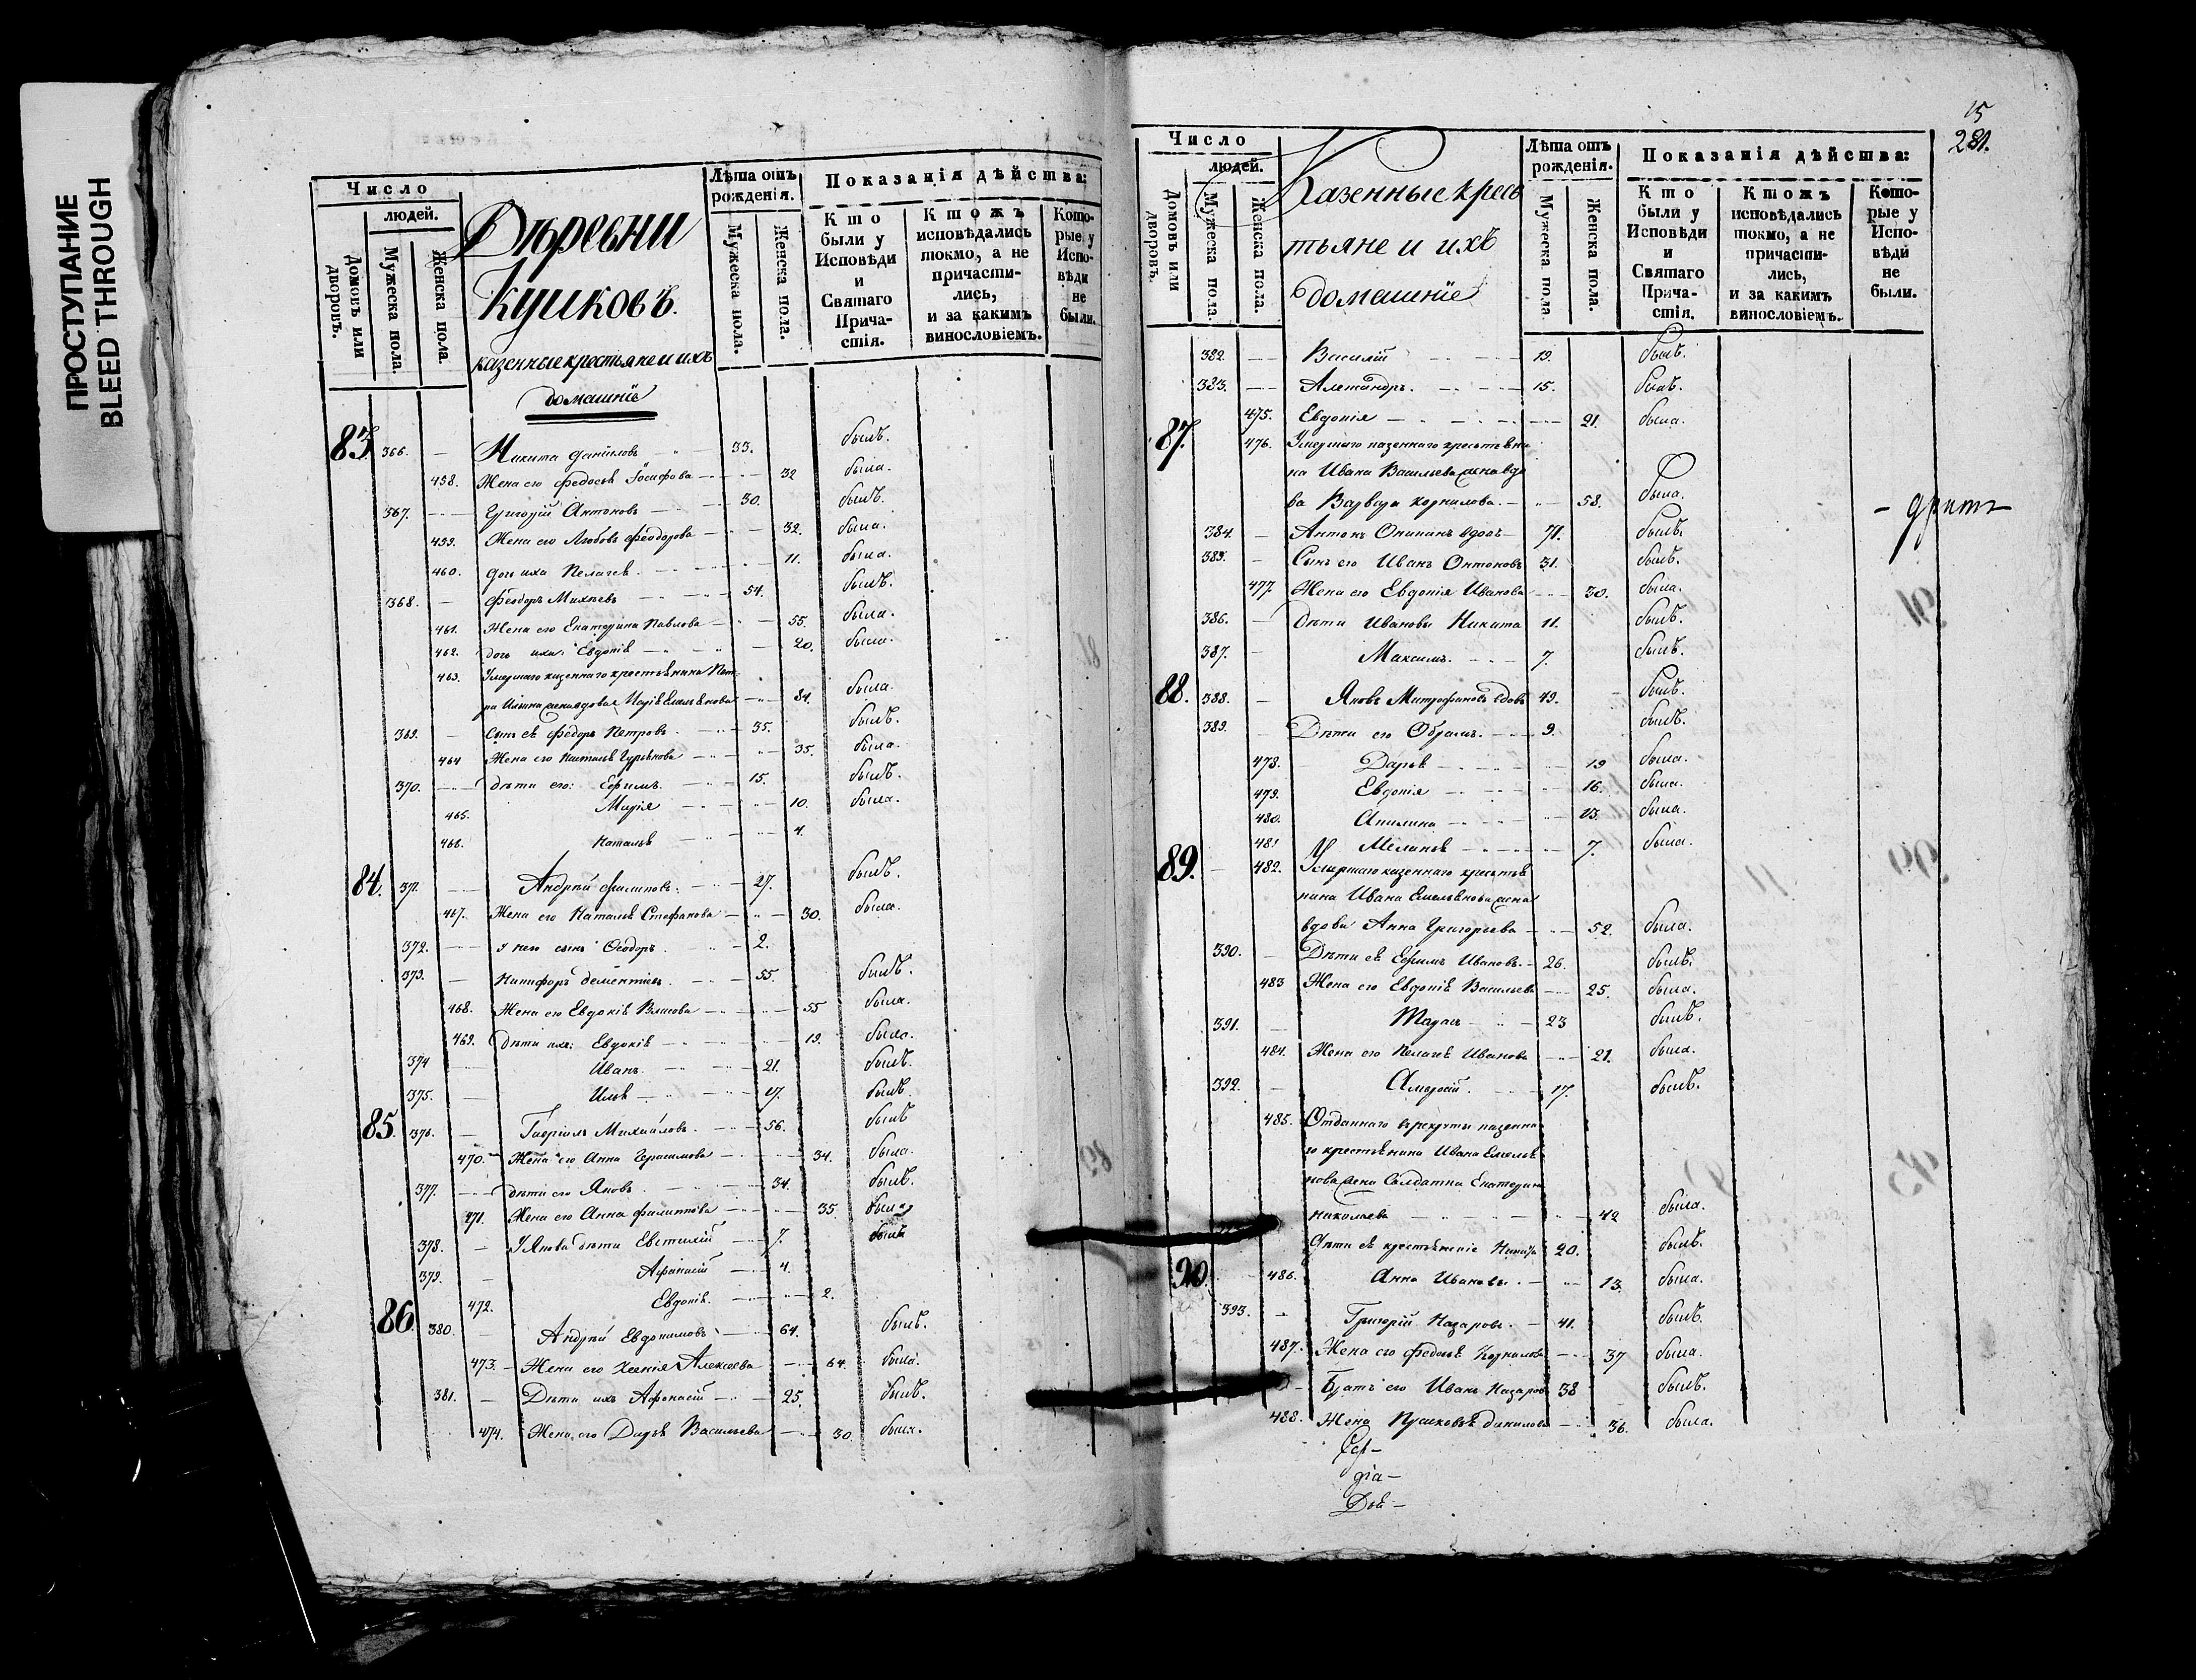 ПРОСТУПАНИЕ
BLEED THROUGH
Число
людей.
Домовъ или дворовъ.
Мужеска пола.
Женска пола.
Дѣревни
Кушковъ.
казенные крестьяне и ихъ
домашніе
Лѣта отъ рожденія.
Мужеска пола.
Женска пола.
Показанія дѣйства:
Кто были у Исповѣди и Святаго Причастія.
Ктожъ исповѣдались токмо, а не причастились, и за какимъ винословіемъ.
Которые у Исповѣди не были.
83. 366. Никита Даніиловъ 33. былъ.
458. Жена его Федосья Іосифова 32 была.
367. Григорій Антоновъ 30. былъ.
459. Жена его Любовь Феодорова 32. была.
460. дочь ихъ Пелагея. 11. была.
368. Феодоръ Михѣевъ 54. былъ.
461. Жена его Екатерина Павлова 55. была.
462. дочь ихъ Евдокія 20. была.
463. Умершаго казеннаго крестьянина Пет
ра Ильина жена вдова Марія Емельянова 84. была.
369. Сынъ ея Феодоръ Петровъ. 35. былъ.
464 Жена его Наталья Гурьянова 35. была.
370. дѣти его: Ефимъ. 15. былъ.
465. Марія 10. была.
466. Наталья 4.
84. 371. Андрей Филиповъ. 27. былъ.
467. Жена его Наталья Стефанова 30. была.
372. у него сынъ Ѳеодоръ. 2.
373. Никифоръ Дементіевъ. 55. былъ.
468. Жена его Евдокія Власова 55 была.
469. дѣти ихъ: Евдокія 19. была.
374 Иванъ. 21. былъ.
375. Илья 17. былъ.
85. 376. Гавріилъ Михайловъ. 56. былъ
470. Жена его Анна Герасимова 34. была.
377. дѣти его Яковъ 34. былъ.
471. Жена его Анна Филиппова 35. была
378. У Якова дѣти Евстихій 7. былъ
379. Афанасій 4.
472. Евдокія. 2.
86. 380. Андрей Евдокимовъ 64. былъ.
473. Жена его Ксенія Алексеева 64. была.
381. Дѣти ихъ Афонасій 25. былъ.
474. Жена его Дарья Васильева 30. была.
15
281.
Число
людей.
Домовъ или дворовъ.
Мужеска пола.
Женска пола.
Казенные крес
тьяне и ихъ
домашніе
Лѣта отъ рожденія.
Мужеска пола
Женска пола.
Показанія дѣйства:
Кто были у Исповѣди и Святаго Причастія.
Ктожъ исповѣдались токмо, а не причастились, и за какимъ винословіемъ.
Которые у Исповѣди не были.
382. Василій 19. былъ.
383. Александръ. 15. былъ.
475. Евдокія 21. была.
87. 476. Умершаго казеннаго крестьяни
на Ивана Васильева жена вдо
ва Варвара Корнилова. 58. была.
384. Антонъ Ананьинъ вдовъ 71. былъ.
385. Сынъ его Иванъ Онтоновъ 31. былъ.
477. Жена его Евдокія Иванова 30. была.
386. Дѣти Ивановы Никита 11. былъ.
387. Максимъ. 7. былъ.
88. 388. Яковъ Митрофановъ вдовъ 49. былъ.
389. Дѣти его Обрамъ. 9. былъ.
478. Дарья 19 была.
479. Евдокія 16. была.
480. Акилина 13. была.
481 Меланья 7. была.
89. 482. Умершаго казеннаго крестья
нина Ивана Емельянова жена
вдова Анна Григорьева 52. была.
390. Дѣти ея Ефимъ Ивановъ. 26. былъ.
483 Жена его Евдокія Васильева 25. была.
391. Тарасъ 23 былъ.
484. Жена его Пелагея Иванова 21. была.
392. Амвросій. 17. былъ.
485. Отданнаго въ рекруты казенна
го крестьянина Ивана Емелья
нова жена Салдатка Екатерина
Николаева 42 была.
Дѣти ея крестьянскіе Никита 20. былъ.
90. 486. Анна Ивановы. 13. была.
393. Григорій Назаровъ. 41. былъ.
487. Жена его Федосья Корнилова 37 была.
Братъ его Иванъ Назаровъ 38 былъ.
488. Жена Прасковья Данилова 36. была.
діа-